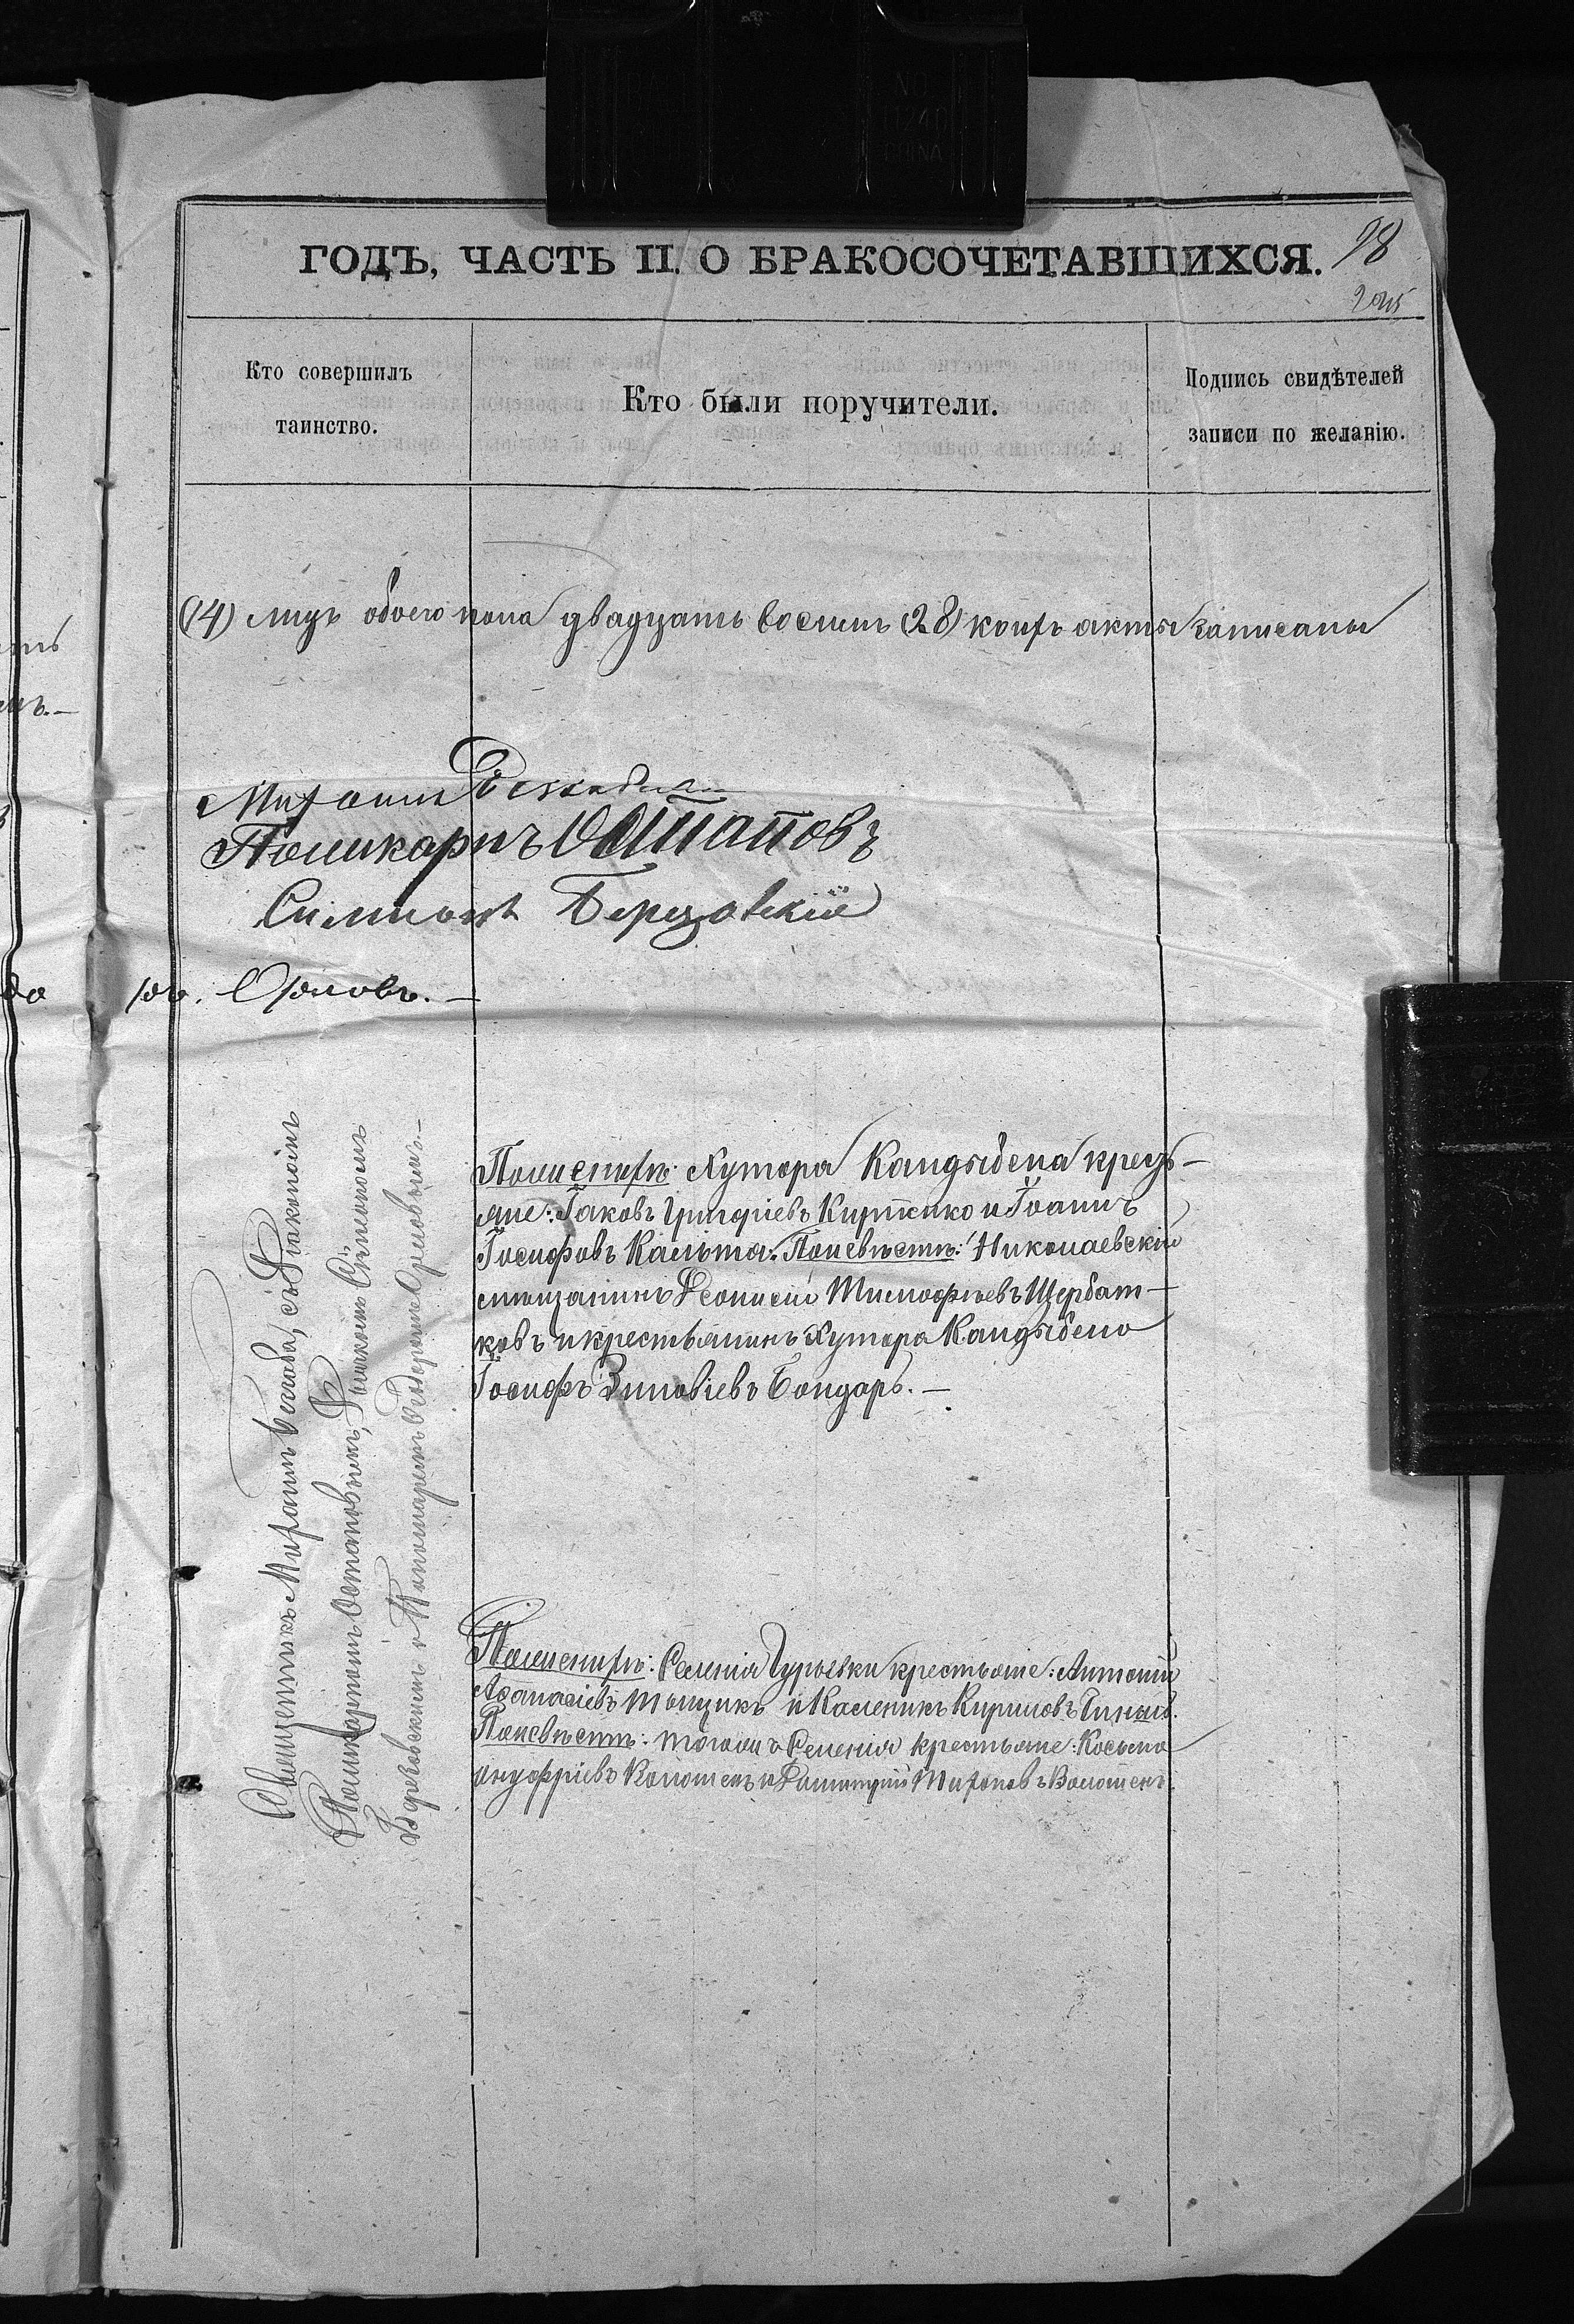 ГОДЪ, ЧАСТЬ II. О БРАКОСОЧЕТАВШИХСЯ.
98
Кто совершилъ
таинство.
Кто были поручители.
Подпись свидѣтелей
записи по желанію.
(14) лицъ обоего пола двадцать восемь (28) коихъ акты записаны
Поликарпъ Остаповъ
Березовскій
Орловъ. —
Священникъ Миронъ, съ Діакономъ
Поликарпомъ Остаповымъ, Дьякомъ Симеономъ
Березовскимъ и Пономаремъ Ѳедоромъ Орловымъ. —
По женихѣ: Хутора Кандыбена кресть-
яне: Іаковъ Григоріевъ и Іоаннъ
Іосифовъ Калюта. По невѣстѣ: Николаевскій
мѣщанинъ Діонисій Тимоѳеевъ Щербат-
ковъ и крестьянинъ Хутора Кандыбено
Іосифъ Зиновіевъ Бондарь. —
По женихѣ: Селенія Гурьевки крестьяне: Антоній
Аѳанасіевъ и Каленикъ Кириловъ
По невѣстѣ: того же Селенія крестьяне: Косьма
Онуфріевъ Волошенъ и Димитрій Мироновъ Волошенъ.